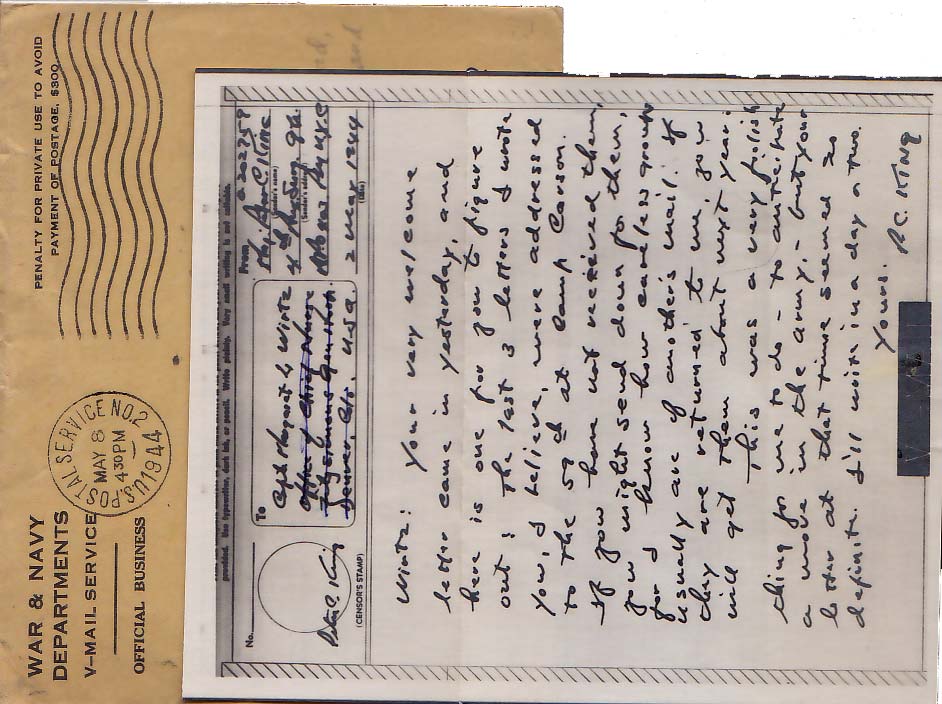 WAR & NAVY
DEPARTMENTS
V-MAIL SERVICE
OFFICIAL BUSINESS
U.S. POSTAL SERVICE NO. 2
MAY 8
430PM
1944
PENALTY FOR PRIVATE USE TO AVOID
PAYMENT OF POSTAGE, $300
provided. Use typewriter, dark ink, or pencil. Write plainly. Very small writing is not suitable.
No.
(CENSOR'S STAMP)
To
Capt Margaret L. Wirtz
Office of Chief Nurse
Fitzsimons Gen Hosp.
Denver, Colo. USA
From
0202759
(Sender's name)
(Sender's address)
2 May 1944
(Date)
Wirtz: Your very welcome
letter came in yesterday, and
here is one for you to figure
out: The last 3 letters I wrote
you, I believe, were addressed
to the 59th at Camp Carson.
If you have not received them,
you might send down for them,
for I know how careless groups
usually are of another's mail. If
they are returned to me, you
will get them about next year.
This was a very foolish
thing for me to do - to anticipate
a move in the army. - but your
letter at that time seemed so
definite. I'll write in a day or two.
Yours.
P.C. KING